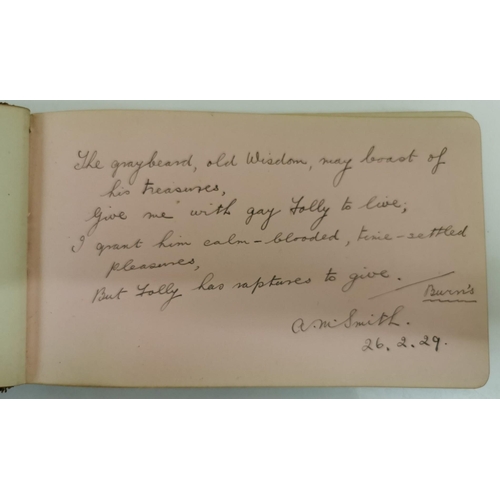 The graybeard, old Wisdom, may boast of
his treasures,
Give me with gay Folly to live;
I grant him calm-blooded, time-settled
pleasures,
But Folly has raptures to give.
Burn's
A. M. Smith.
26. 2. 29.